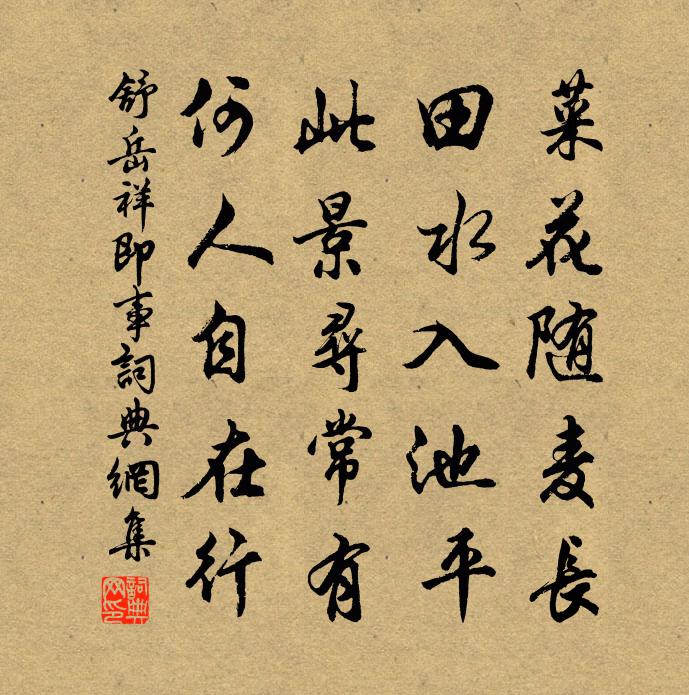 菜花随麦長
田水入池平
此景尋常有
何人自在行
舒岳祥即事詞典網集
詞典網印